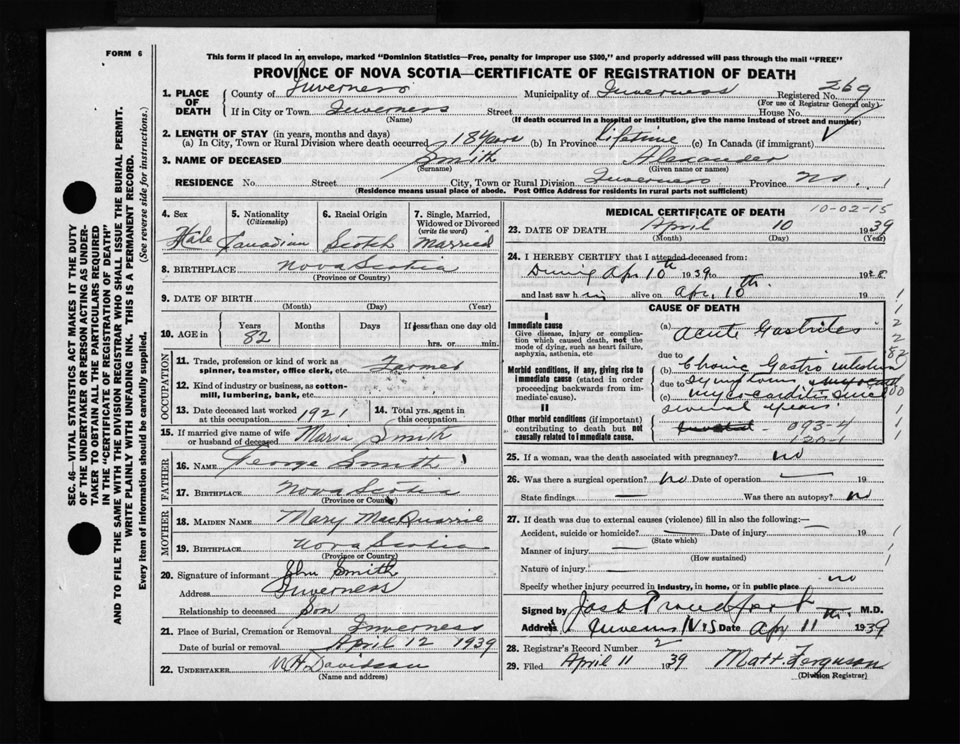 FORM 6
This form if placed in an envelope, marked "Dominion Statistics—Free, penalty for improper use $300," and properly addressed will pass through the mail "FREE"
PROVINCE OF NOVA SCOTIA—CERTIFICATE OF REGISTRATION OF DEATH
1. PLACE OF DEATH County of Inverness Municipality of Inverness Registered No. 269
(For use of Registrar General only)
If in City or Town Inverness Street House No.
(Name) (If death occurred in a hospital or institution, give the name instead of street and number)
2. LENGTH OF STAY (in years, months and days)
(a) In City, Town or Rural Division where death occurred 18 years (b) In Province Lifetime (c) In Canada (if immigrant)
3. NAME OF DECEASED Smith Alexander
(Surname) (Given name or names)
RESIDENCE No. Street City, Town or Rural Division Inverness Province N.S.
(Residence means usual place of abode. Post Office Address for residents in rural parts not sufficient)
4. Sex Male
5. Nationality (Citizenship) Canadian
6. Racial Origin Scotch
7. Single, Married, Widowed or Divorced (write the word) Married
8. BIRTHPLACE Nova Scotia
(Province or Country)
9. DATE OF BIRTH
(Month) (Day) (Year)
10. AGE in Years Months Days If less than one day old
82 hrs. or min.
OCCUPATION
11. Trade, profession or kind of work as spinner, teamster, office clerk, etc. Farmer
12. Kind of industry or business, as cotton-mill, lumbering, bank, etc.
13. Date deceased last worked at this occupation 1921 14. Total yrs. spent in this occupation
15. If married give name of wife or husband of deceased Maria Smith
FATHER
16. NAME George Smith
17. BIRTHPLACE Nova Scotia
(Province or Country)
MOTHER
18. MAIDEN NAME Mary MacQuarrie
19. BIRTHPLACE Nova Scotia
(Province or Country)
20. Signature of informant John Smith
Address Inverness
Relationship to deceased Son
21. Place of Burial, Cremation or Removal Inverness
Date of burial or removal April 12 1939
22. UNDERTAKER W H Davidson
(Name and address)
MEDICAL CERTIFICATE OF DEATH 10-02-15
23. DATE OF DEATH April 10 1939
(Month) (Day) (Year)
24. I HEREBY CERTIFY that I attended deceased from:
During Apr 10th 1939 to 19
and last saw h im alive on Apr. 10th. 19
CAUSE OF DEATH
I
Immediate cause
Give disease, injury or complication which caused death, not the mode of dying, such as heart failure, asphyxia, asthenia, etc
(a) Acute Gastrites
due to
Morbid conditions, if any, giving rise to immediate cause (stated in order proceeding backwards from immediate cause).
(b) Chronic Gastro intestinal
due to symptoms
(c) myocarditis since
several years
II
Other morbid conditions (if important) contributing to death but not causally related to immediate cause.
093-4
120-1
25. If a woman, was the death associated with pregnancy? no
26. Was there a surgical operation? no Date of operation — 19
State findings — Was there an autopsy? no
27. If death was due to external causes (violence) fill in also the following:—
Accident, suicide or homicide? — Date of injury 19
(State which)
Manner of injury —
(How sustained)
Nature of injury —
Specify whether injury occurred in industry, in home, or in public place no
Signed by Jas Proudfoot M.D.
Address Inverness N S Date Apr 11th. 1939
28. Registrar's Record Number 2
29. Filed April 11 1939 Matt. Ferguson
(Division Registrar)
SEC. 46—VITAL STATISTICS ACT MAKES IT THE DUTY
OF THE UNDERTAKER OR PERSON ACTING AS UNDER-
TAKER TO OBTAIN ALL THE PARTICULARS REQUIRED
IN THE "CERTIFICATE OF REGISTRATION OF DEATH"
AND TO FILE THE SAME WITH THE DIVISION REGISTRAR WHO SHALL ISSUE THE BURIAL PERMIT.
WRITE PLAINLY WITH UNFADING INK. THIS IS A PERMANENT RECORD.
Every item of information should be carefully supplied. (See reverse side for instructions.)